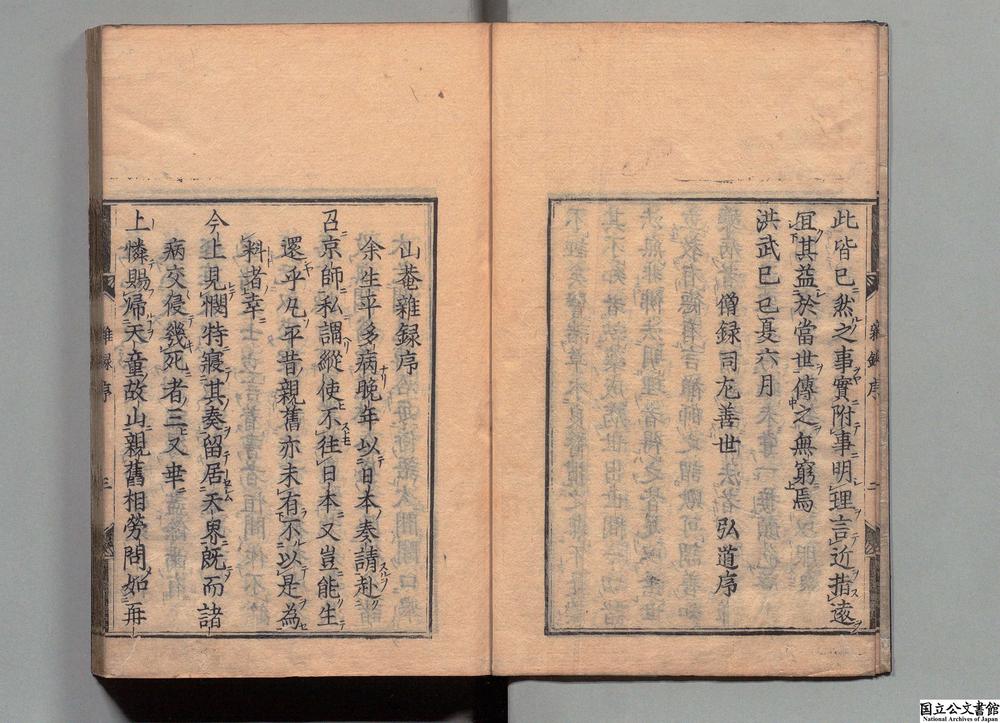 此皆已然之事實附事明理言近指遠
宜其益於當世傳之無窮焉
洪武己巳夏六月
僧録司左善世 弘道序
雜録序
二
山菴雜録序
余生平多病晚年以日本奏請赴
召京師私謂縱使不往日本又豈能生
還乎凡平昔親舊亦未有不以是為
料者幸
今上見憫特寢其奏留居天界既而諸
病交侵幾死者三又幸
上憐賜帰天童故山親舊相勞問如再
雜録序
三
国立公文書館
National Archives of Japan